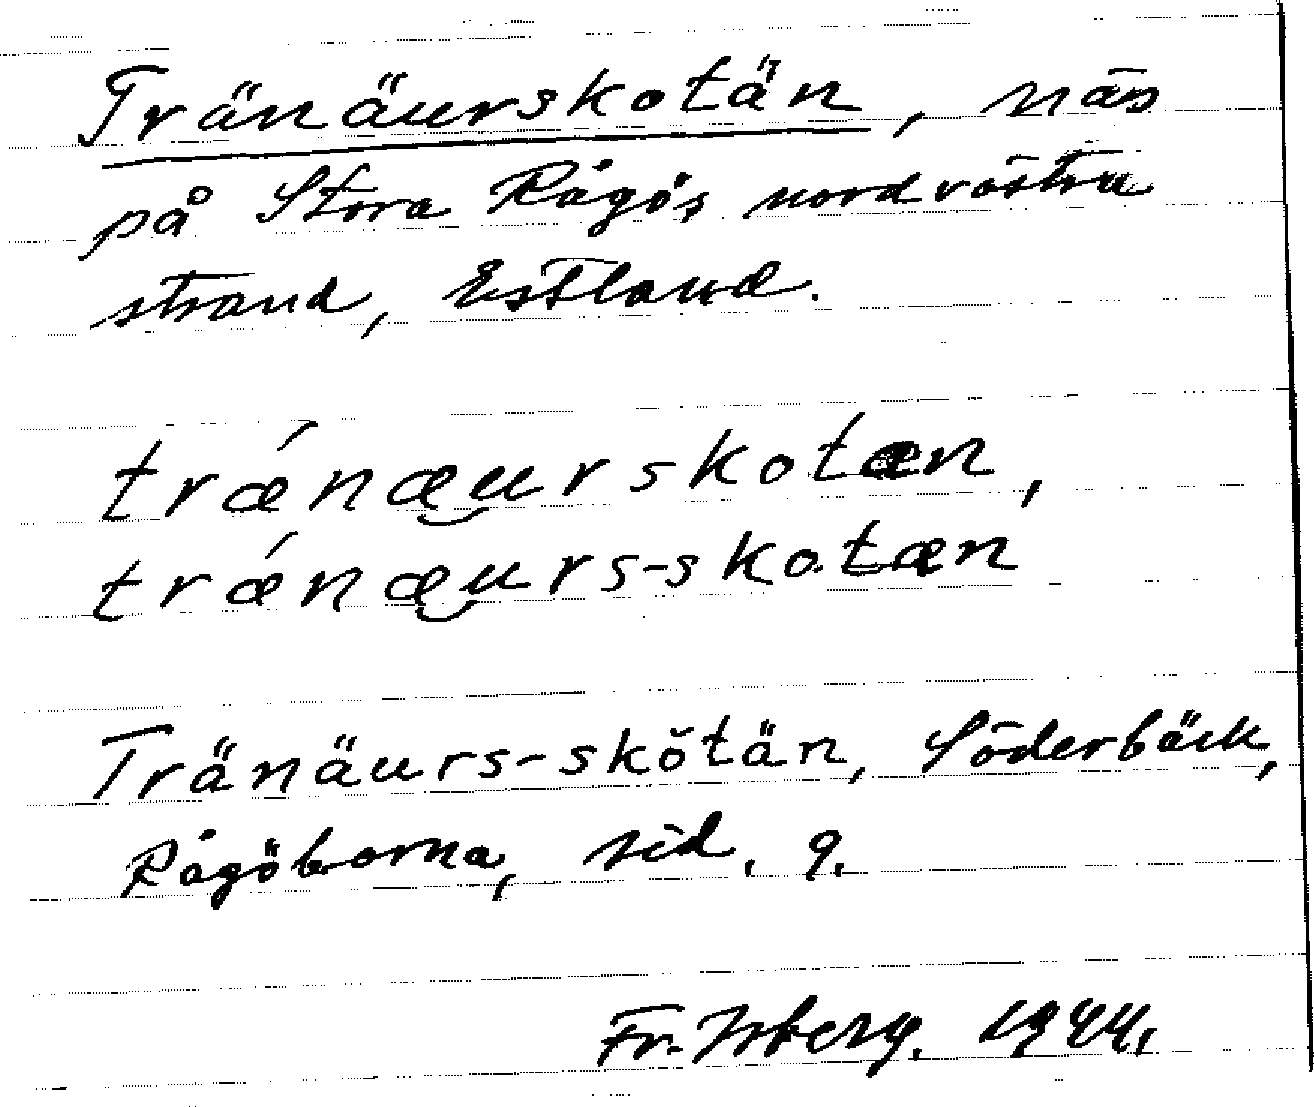 Tränäurskotän, näs
på Stora Rågös nordvästra
strand, Estland.
trǽnæu̯rskotæn,
trǽnæu̯rs-skotæn
Tränäurs-skŏtän, Söderbäck,
Rågöborna, sid. 9.
Fr. 1944.